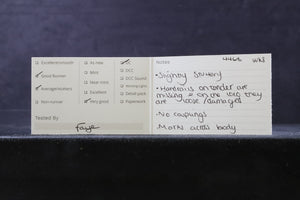 Excellent/smooth
Good Runner
Average/stutters
Non-runner
Tested By
Faye
As new
Mint
Near mint
Excellent
Very good
DCC
DCC Sound
Working Lights
Detail pack
Paperwork
Notes
4468 WRS
- Slightly Stuttery
- Handrails on tender are
missing & on the loco they
are loose/damaged
- No couplings
- Marks across body